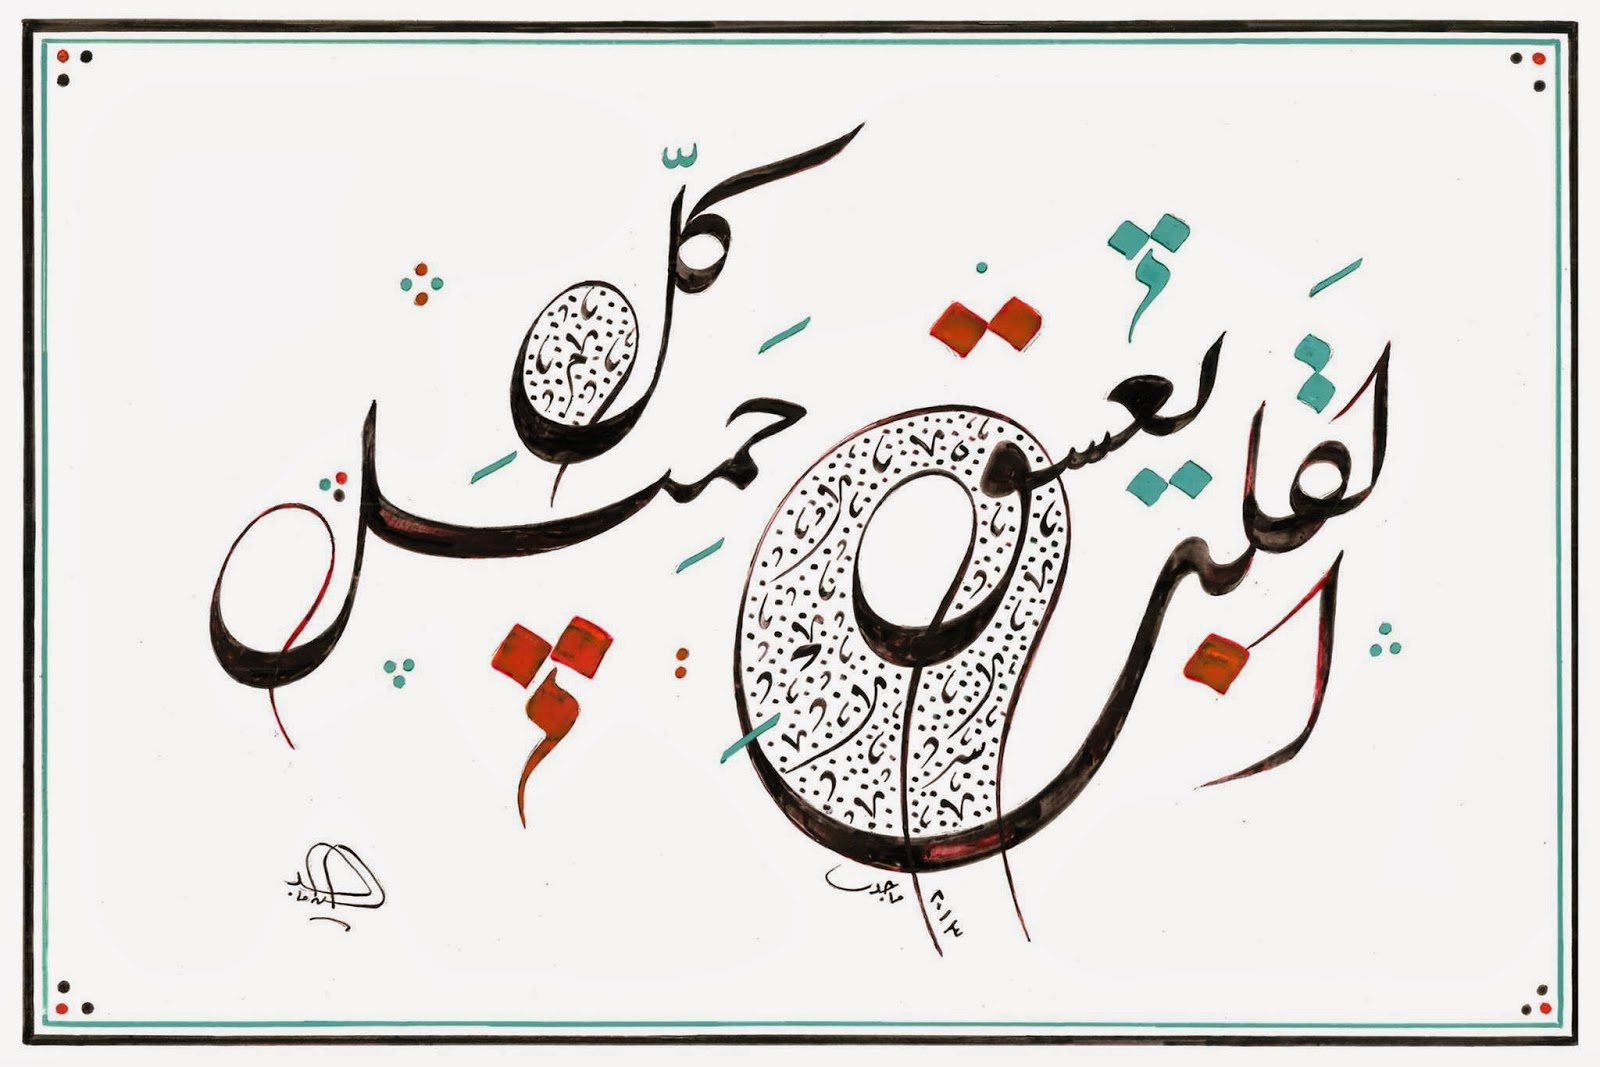 القلب يعشق كلّ جميل
ماجد ٢٠١٣